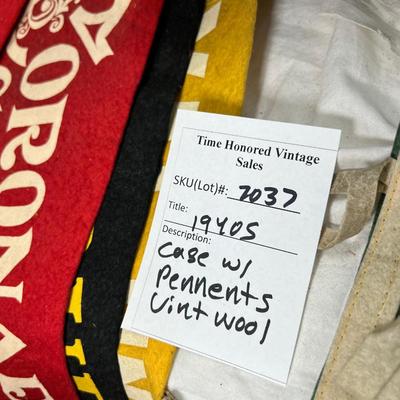 CORONA
Time Honored Vintage
Sales
SKU(Lot)#: 7037
Title: 1940s
Description:
Case w/
Pennents
Vint wool